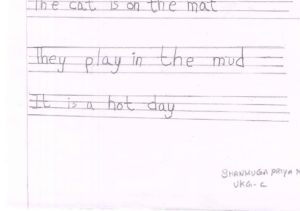 The cat is on the mat
They play in the mud
It is a hot day
SHANMUGA PRIYA
UKG-